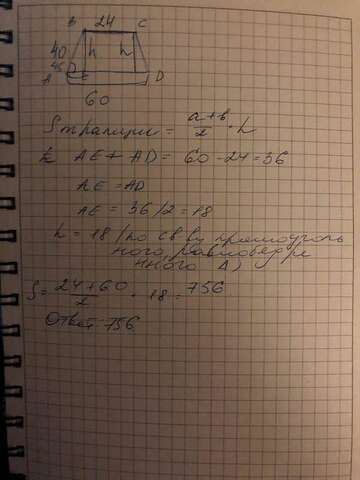 24
B C
40 h h
45
A E D
60
S трапеции = a+b/2 · h
AE + AD = 60 - 24 = 36
AE = AD
AE = 36/2 = 18
h = 18 (по св-ву прямоуголь
ного равнобедре
нного Δ)
S = 24+60/2 · 18 = 756
Ответ: 756